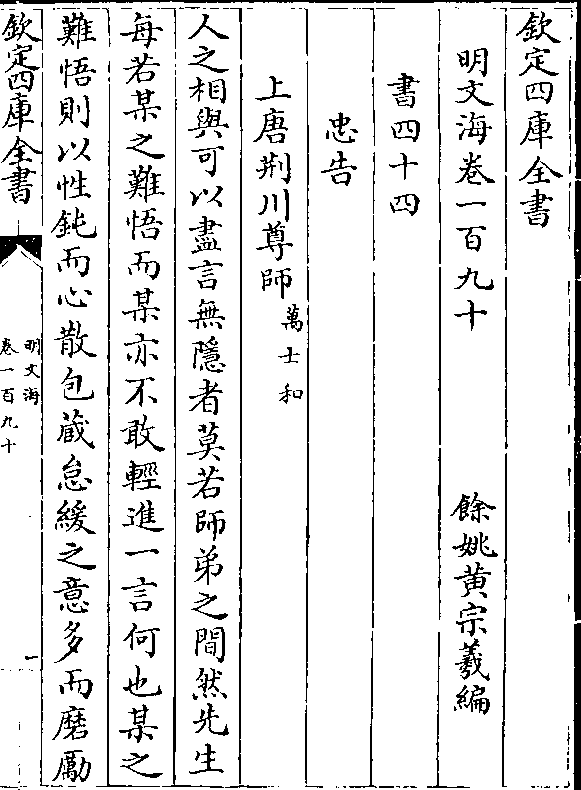 欽定四庫全書
明文海卷一百九十
餘姚黄宗羲編
書四十四
忠告
上唐荆川尊師萬士和
人之相與可以盡言無隱者莫若師弟之間然先生
每若某之難悟而某亦不敢輕進一言何也某之
難悟則以性鈍而心散包蔵怠緩之意多而磨勵
欽定四庫全書
明文海
卷一百九十
一